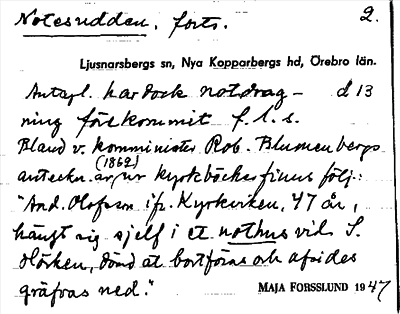 Notesudden, forts. 2.
Ljusnarsbergs sn, Nya Kopparbergs hd, Örebro län.
Antagl. har dock notdrag- d 13
ning förekommit f. l. s.
Bland v. komminister Rob. Blumenbergs
(1862)
anteckn. är/ur kyrkböcker finns följ.:
"And. Olofsson i/fr. Kyrkviken, 47 år,
hängt sig sjelf i et nothus vid S.
Hörken, dömd at bortföras och afsides
gräfvas ned."
MAJA FORSSLUND 1947